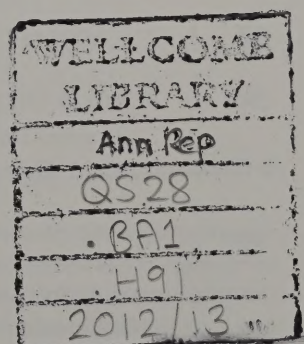 WELLCOME
LIBRARY
Ann Rep
QS28
.BA1
.H91
2012/13